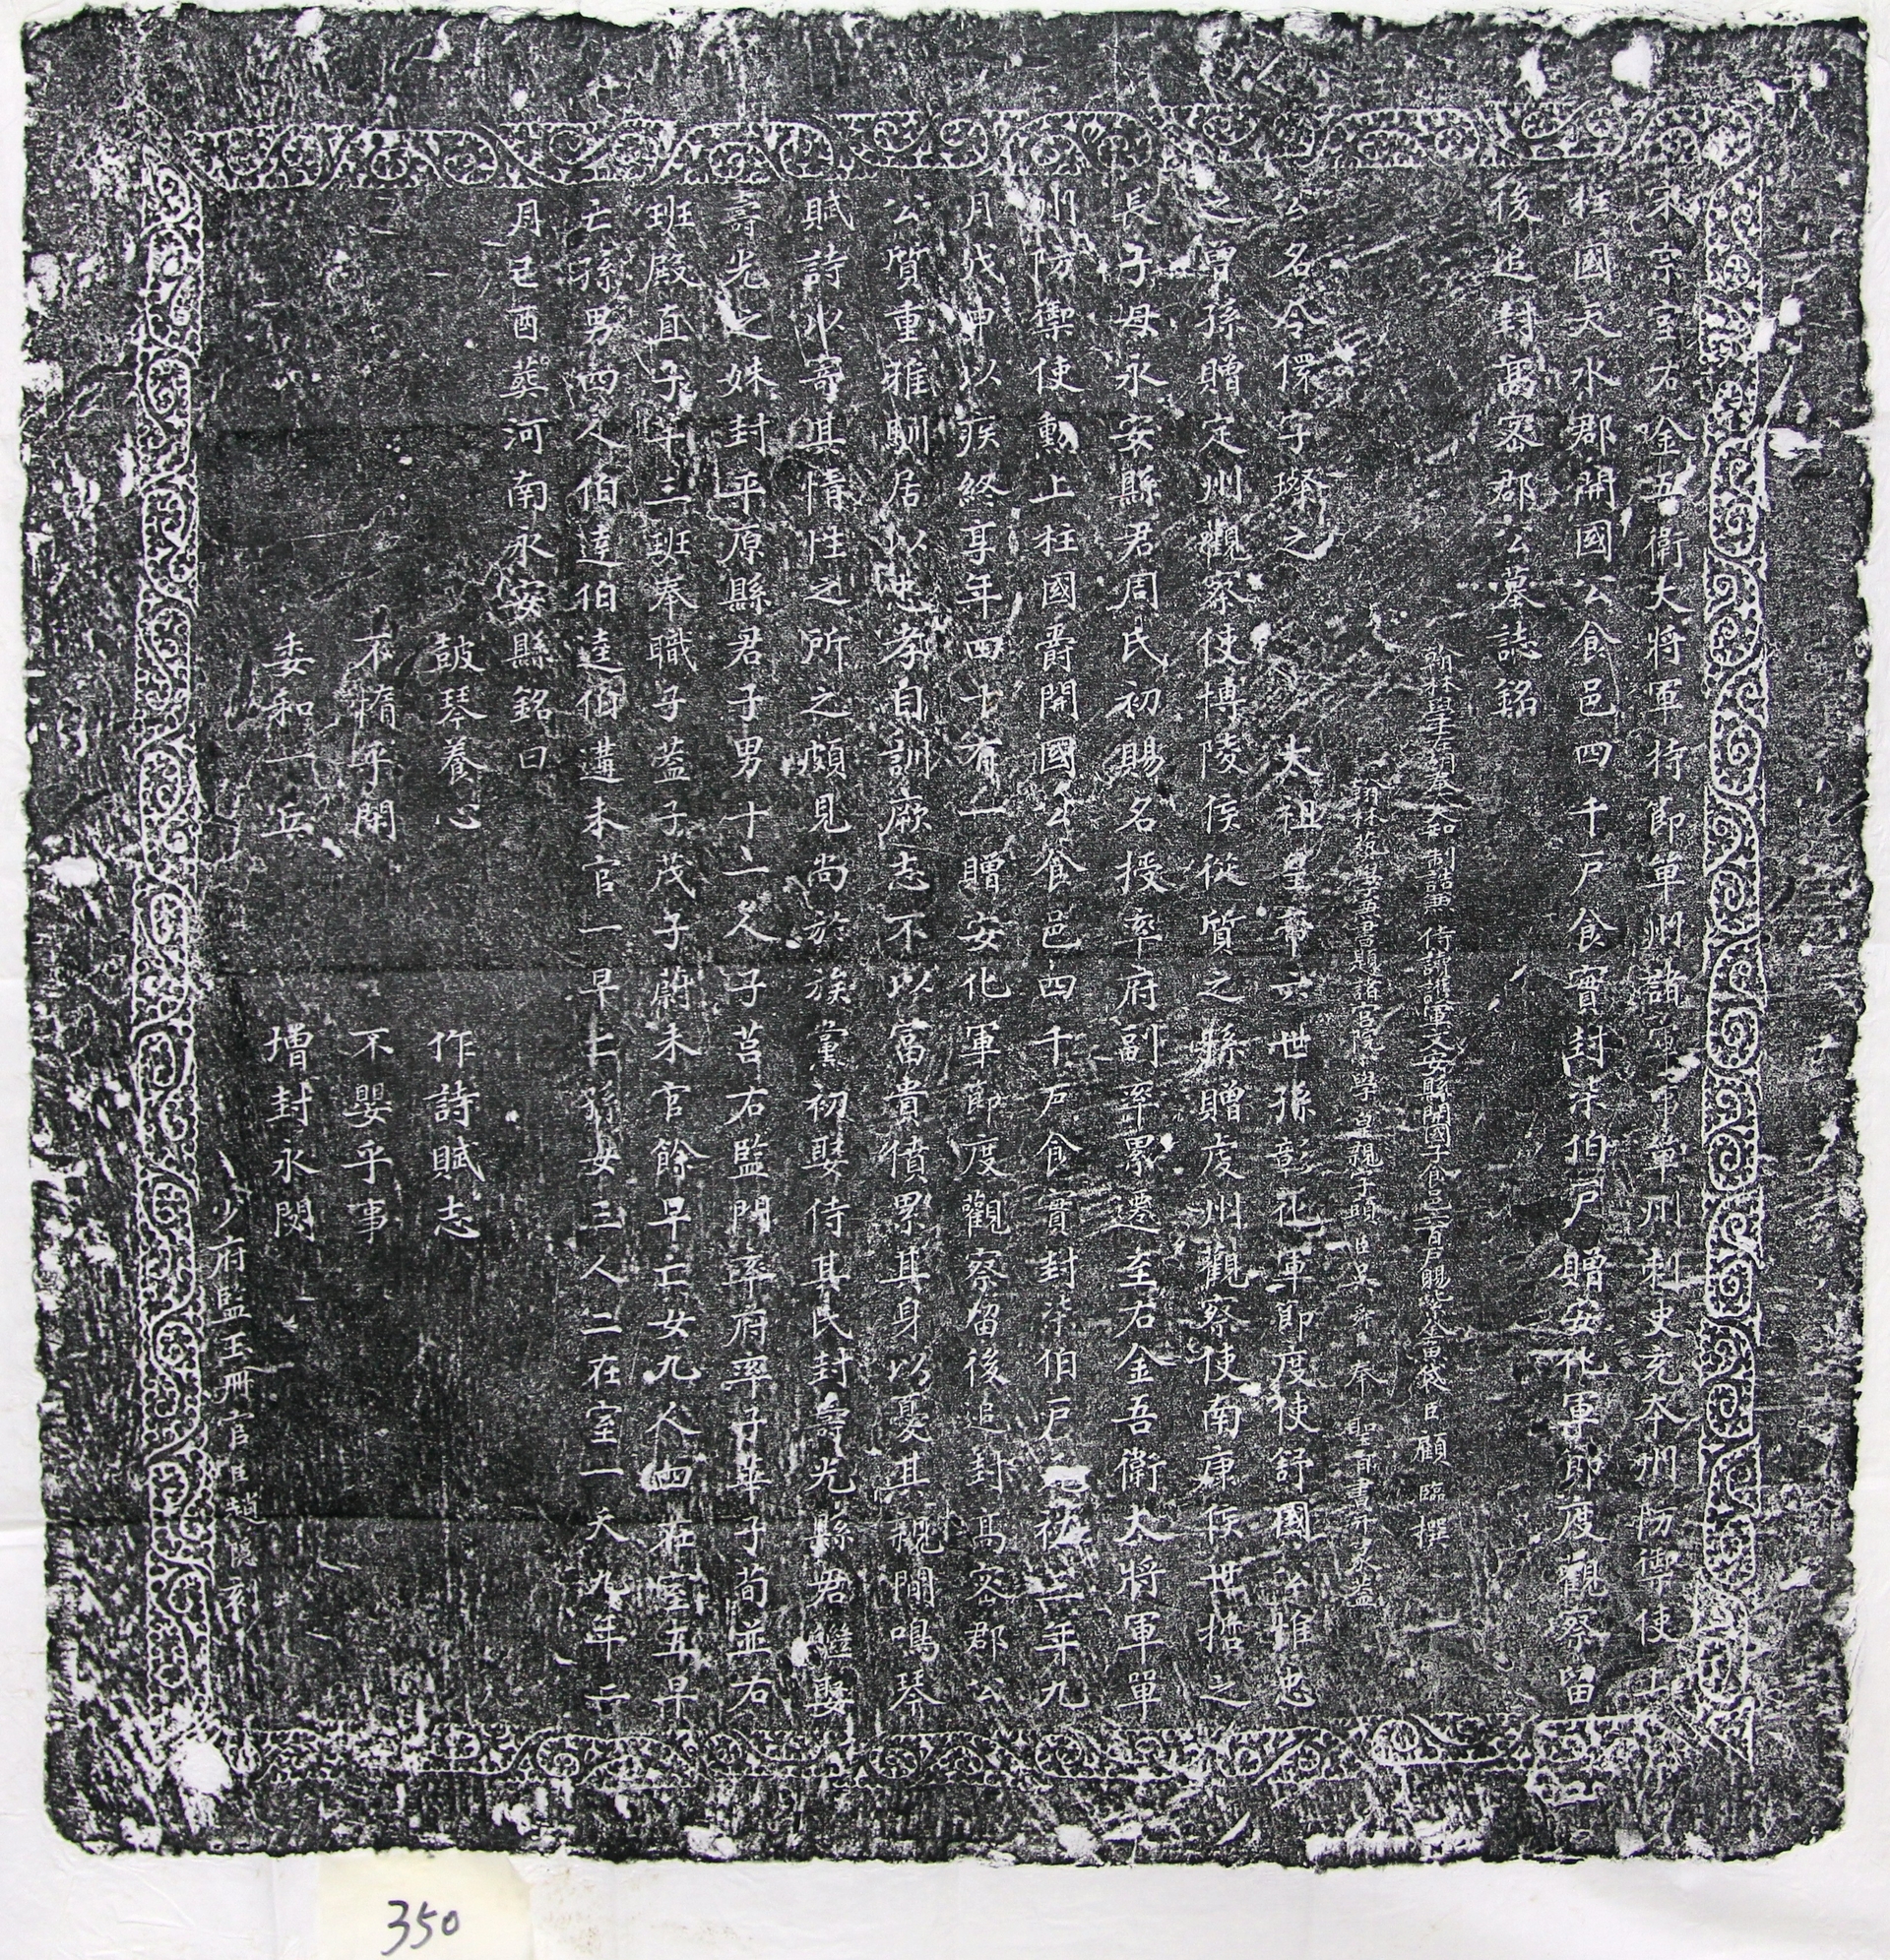 宋宗室右金吾衛大將軍持節單州諸軍事單州刺史充本州防禦使上
柱國天水郡開國公食邑四千戶食實封柒伯戶贈安化軍節度觀察留
後追封高密郡公墓誌銘
翰林學士左朝奉大夫知制誥兼侍讀護軍文安縣開國子食邑六百戶賜紫金魚袋臣顧臨撰
翰林藝學兼書題諸宮院小學皇親字頭臣吳舜奉聖旨書并篆蓋
公名令儇字璨之太祖皇帝六世孫彰化軍節度使舒國公惟忠
之曾孫贈定州觀察使博陵侯從質之孫贈虔州觀察使南康侯世擔之
長子母永安縣君周氏初賜名授率府副率累遷至右金吾衛大將軍單
州防禦使勳上柱國爵開國公食邑四千戶食實封柒伯戶元祐三年九
月戊申以疾終享年四十有一贈安化軍節度觀察留後追封高密郡公
公質重雅馴居以忠孝自訓厥志不以富貴僨累其身以憂其親閒鳴琴
賦詩以寄其情性之所之頗見尚於族黨初娶侍其氏封壽光縣君繼娶
壽光之妹封平原縣君子男十二人子莒右監門率府率子華子荀並右
班殿直子千三班奉職子蓋子茂子蔚未官餘早亡女九人四在室五早
亡孫男四人伯達伯逵伯遘未官一早亡孫女三人二在室一夭九年二
月己酉葬河南永安縣銘曰
鼓琴養心 作詩賦志
不惰乎閒 不嬰乎事
委和一丘 增封永閟
少府監玉冊官臣趙隱刻
350